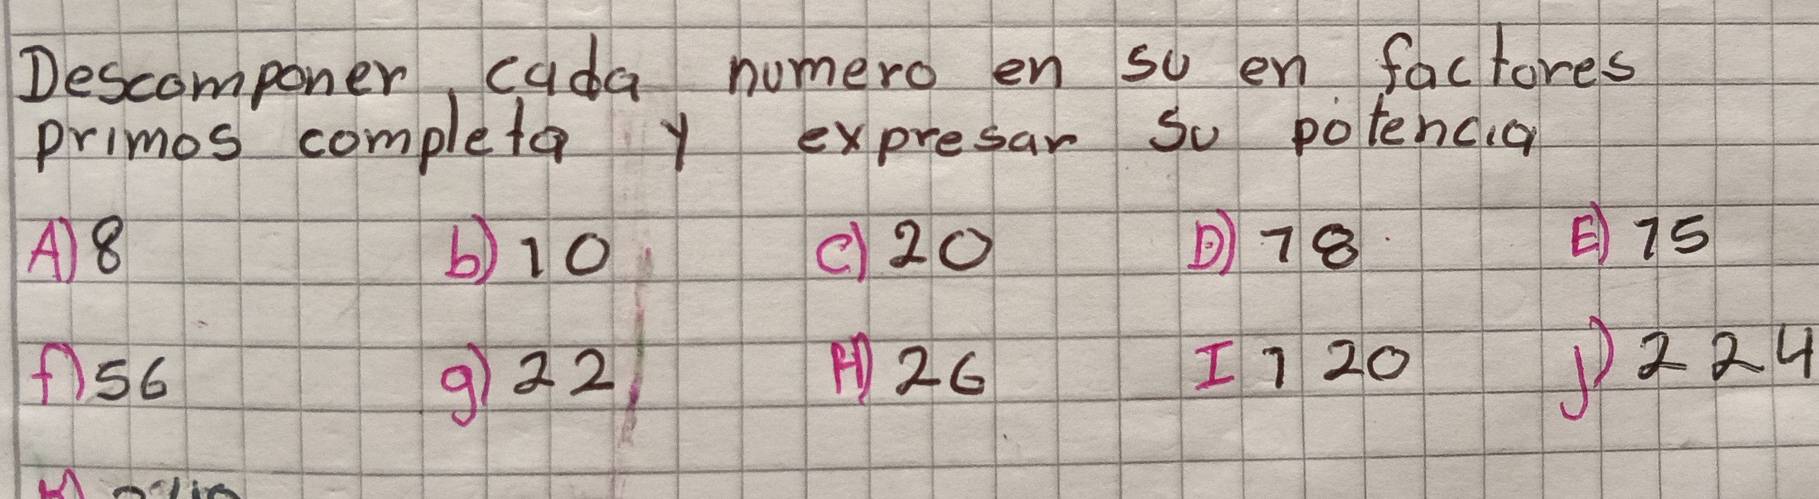 Descomponer cada numero en su en factores
primos completa y expresar su potencia
A) 8 b) 10 c) 20 D) 18 E) 15
f) 56 g) 22 H) 26 I 120 j) 224
K)